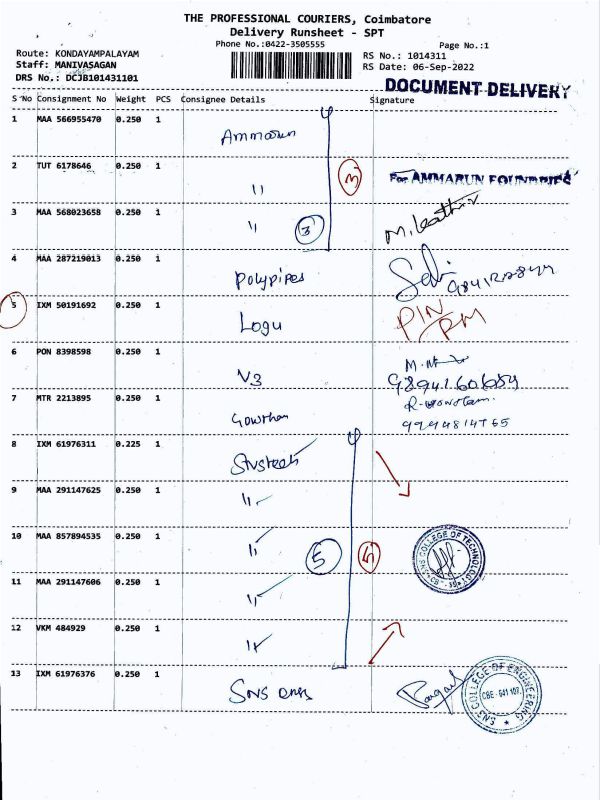 THE PROFESSIONAL COURIERS, Coimbatore
Delivery Runsheet - SPT
Phone No.:0422-3505555 Page No.:1
Route: KONDAYAMPALAYAM RS No.: 1014311
Staff: MANIVASAGAN RS Date: 06-Sep-2022
DRS No.: DCJB101431101
DOCUMENT DELIVERY
S No Consignment No Weight PCS Consignee Details Signature
1 MAA 566955470 0.250 1 Ammarun
2 TUT 6178646 0.250 1 " For AMMARUN FOUNDRIES
3 MAA 568023658 0.250 1 " 3
4 MAA 287219013 0.250 1 Polypipes
5 IXM 50191692 0.250 1 Logu PIN/RM
6 PON 8398598 0.250 1 V3
7 MTR 2213895 0.250 1 Gowtham
8 IXM 61976311 0.225 1
9 MAA 291147625 0.250 1 "
10 MAA 857894535 0.250 1 " 5 SNS COLLEGE OF TECHNOLOGY
11 MAA 291147606 0.250 1 "
12 VKM 484929 0.250 1 "
13 IXM 61976376 0.250 1 SNS SNS COLLEGE OF ENGINEERING CBE - 641 107